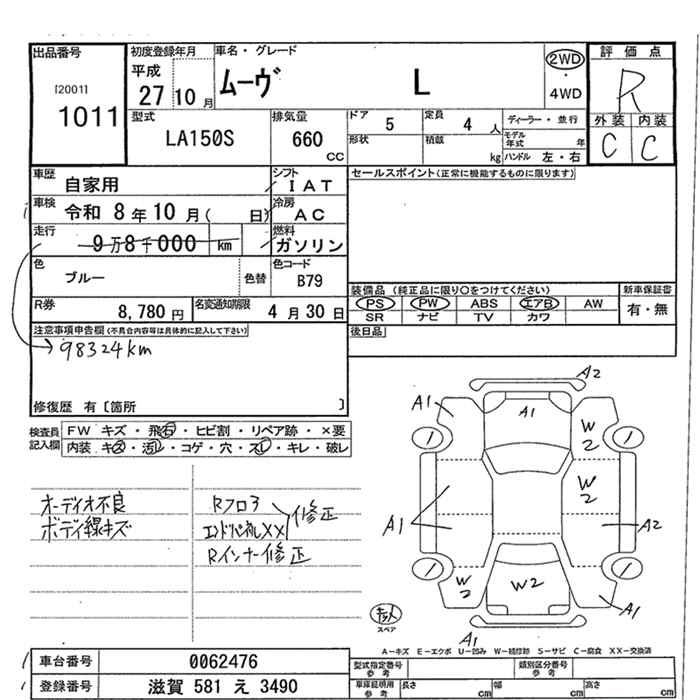 出品番号
[2001]
1011
初度登録年月
平成
27 10 月
車名・グレード
ムーヴ L
2WD
・
4WD
評価点
R
外装 内装
C C
型式
LA150S
排気量
660
cc
ドア
5
定員
4 人
形状
積載
kg
ディーラー・並行
モデル年式 年
ハンドル 左・右
車歴
自家用
シフト
IAT
車検
令和 8 年 10 月( 日)
冷房
AC
走行
9万8千000 km
燃料
ガソリン
色
ブルー
色替
色コード
B79
R券
8,780 円
名変通知期限
4 月 30 日
セールスポイント(正常に機能するものに限ります)
装備品 (純正品に限り〇をつけてください)
PS PW ABS エアB AW
SR ナビ TV カワ
新車保証書
有・無
後日品
注意事項申告欄(不具合内容等は具体的に記入して下さい)
98324km
修復歴 有〔箇所 〕
検査員
記入欄
FW キズ・飛石・ヒビ割・リペア跡・×要
内装 キズ・汚レ・コゲ・穴・スレ・キレ・破レ
オーディオ不良
ボディ線キズ
Rフロア
エンドパネルXX
修正
Rインナー修正
A2
A1
A1
W2
W2
A1
A2
W2
W2
A1
A1
スペア
A－キズ E－エクボ U－凹み W－補修跡 S－サビ C－腐食 XX－交換済
車台番号
0062476
登録番号
滋賀 581 え 3490
型式指定番号
参考
類別区分番号
参考
車庫証明用
参考
長さ cm
幅 cm
高さ cm